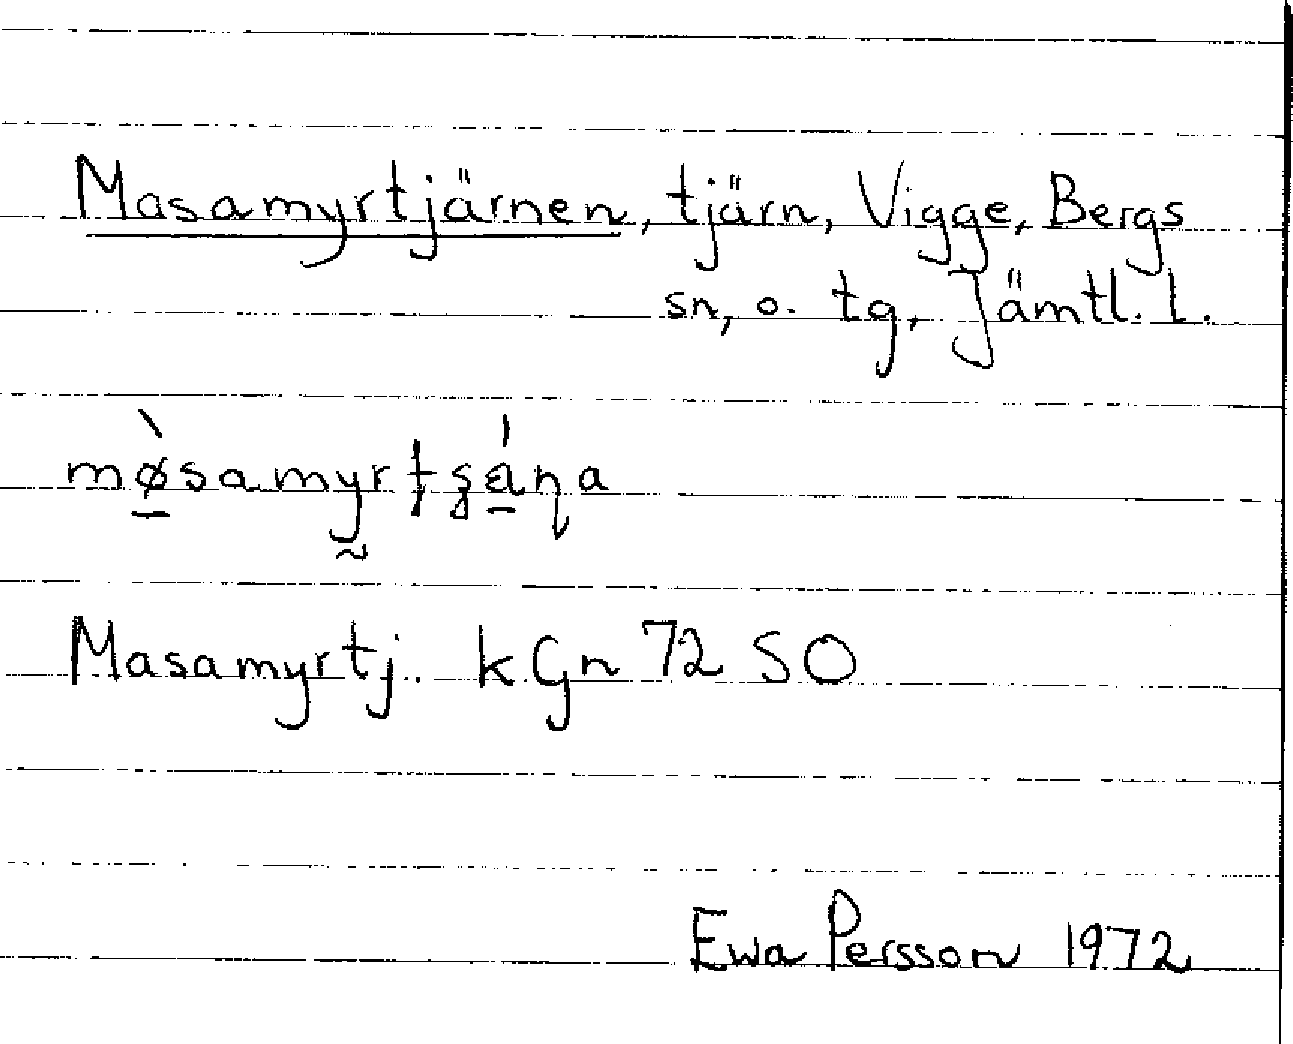 Masamyrtjärnen, tjärn, Vigge, Bergs
sn, o. tg, Jämtl. l.
mø̱̀samy̰rʈʂá̱ɳa
Masamyrtj. kGn 72 SO
Ewa Persson 1972